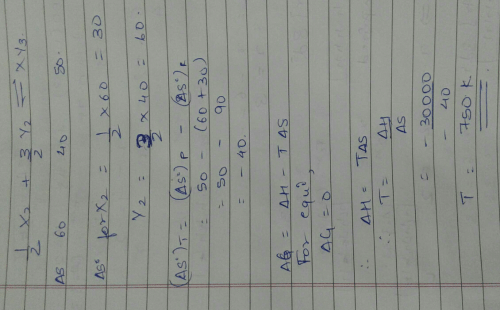 1/2 X2 + 3/2 Y2 ⇌ XY3
ΔS 60 40 50.
ΔS° for X2 = 1/2 × 60 = 30
Y2 = 3/2 × 40 = 60.
(ΔS°)T = (ΔS°)P − (ΔS°)R
= 50 − (60 + 30)
= 50 − 90
= − 40.
ΔG = ΔH − TΔS
For equi,
ΔG = 0
∴ ΔH = TΔS
∴ T = ΔH/ΔS
= − 30000 / − 40
T = 750 K